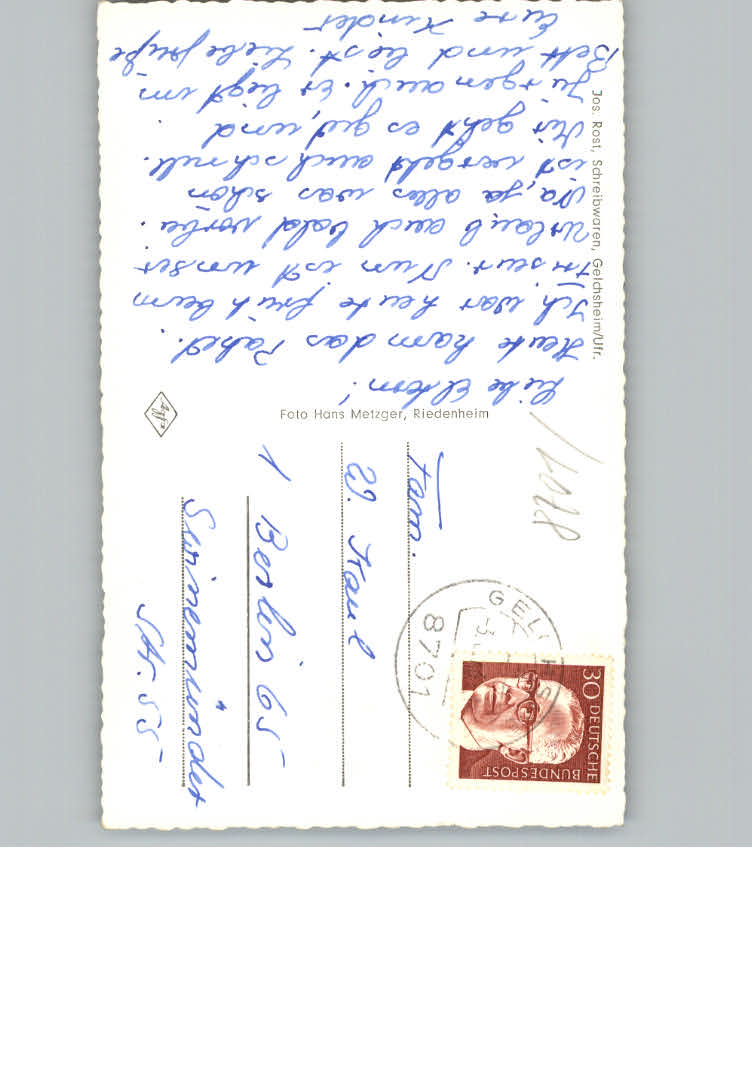 Liebe Eltern!
Heute kam das Paket.
Ich war heute früh beim
Friseur. Nun ist unser
Urlaub auch bald vorbei.
Na, ja alles was schön
ist vergeht auch schnell.
Mir geht es gut, und
Jürgen auch. Er liegt im
Bett und liest. Liebe Grüße
Eure Kinder
Jos. Rost, Schreibwaren, Gelchsheim/Ufr.
Foto Hans Metzger, Riedenheim
Agfa
Fam.
W. Kaul
1 Berlin 65
Swinemünder
Str. 55
8701
GELCHS
8701
30 DEUTSCHE
BUNDESPOST